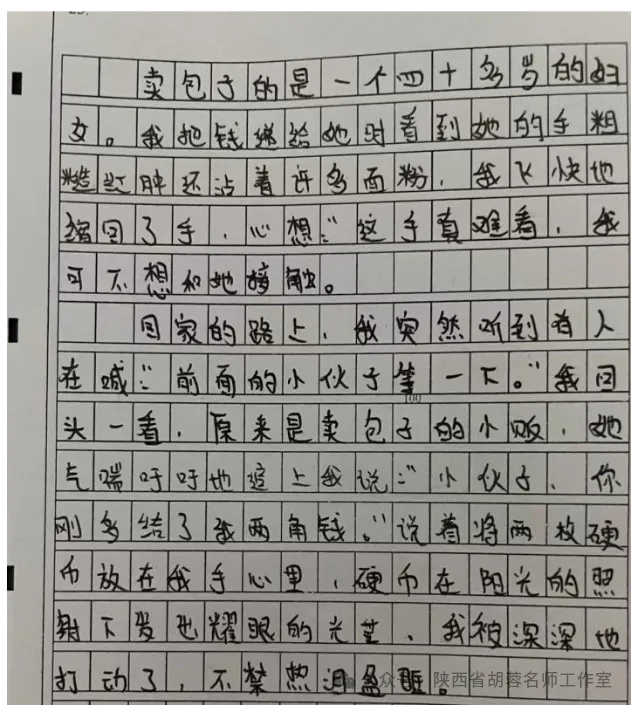 卖包子的是一个四十多岁的妇
女。我把钱递给她时看到她的手粗
糙红肿还沾着许多面粉，我飞快地
缩回了手，心想：“这手真难看，我
可不想和她接触。
回家的路上，我突然听到有人
在喊：“前面的小伙子等一下。”我回
100
头一看，原来是卖包子的小贩，她
气喘吁吁地追上我说：“小伙子，你
刚多结了我两角钱。”说着将两枚硬
币放在我手心里，硬币在阳光的照
射下发出耀眼的光芒，我被深深地
打动了，不禁热泪盈眶。
公众号 陕西省胡蓉名师工作室